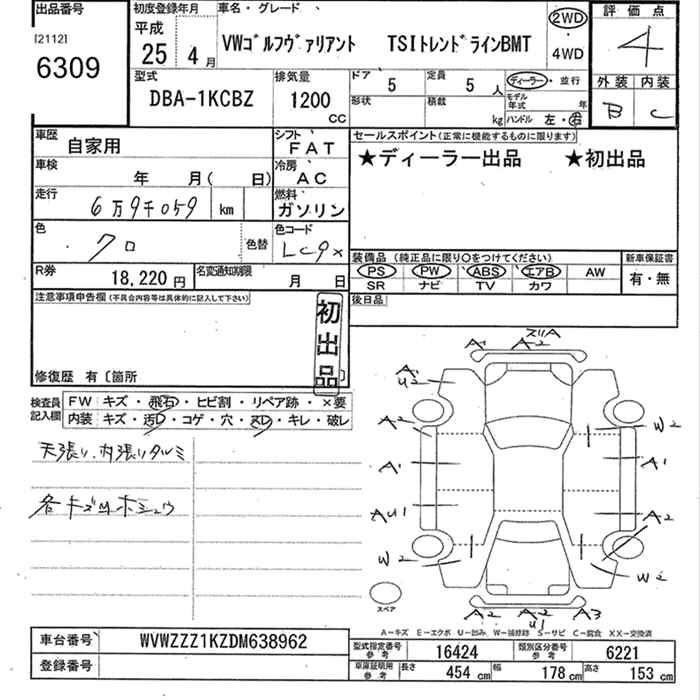 出品番号
[2112]
6309
初度登録年月
平成
25 4月
車名・グレード
VWゴルフヴァリアント TSIトレンドラインBMT
2WD
・
4WD
評価点
4
外装 内装
B C
型式
DBA-1KCBZ
排気量
1200
CC
ドア
5
定員
5人
形状
積載
kg
ディーラー・並行
モデル年式 年
ハンドル 左・右
車歴
自家用
シフト
FAT
車検
年 月( 日)
冷房
AC
走行
6万9千059 km
燃料
ガソリン
色
クロ
色替
色コード
LC9X
R券
18,220円
名変通知期限
月 日
セールスポイント(正常に機能するものに限ります)
★ディーラー出品 ★初出品
装備品(純正品に限り○をつけてください)
PS PW ABS エアB AW
SR ナビ TV カワ
新車保証書
有・無
後日品
注意事項申告欄(不具合内容等は具体的に記入して下さい)
初出品
修復歴 有〔箇所
検査員記入欄
FW キズ・飛石・ヒビ割・リペア跡・×要
内装 キズ・汚れ・コゲ・穴・スレ・キレ・破レ
天張り、内張りタルミ
各キズ凹ホシュウ
A1 A2 ズリA
A1
U2
A2
W2
A1
A1
AU1
A2
W2
W2
A2 A2 A3
U1
スペア
A-キズ E-エクボ U-凹み W-補修跡 S-サビ C-腐食 XX-交換済
車台番号
WVWZZZ1KZDM638962
登録番号
型式指定番号
参考
16424
類別区分番号
参考
6221
車庫証明用
参考
長さ
454 cm
幅
178 cm
高さ
153 cm